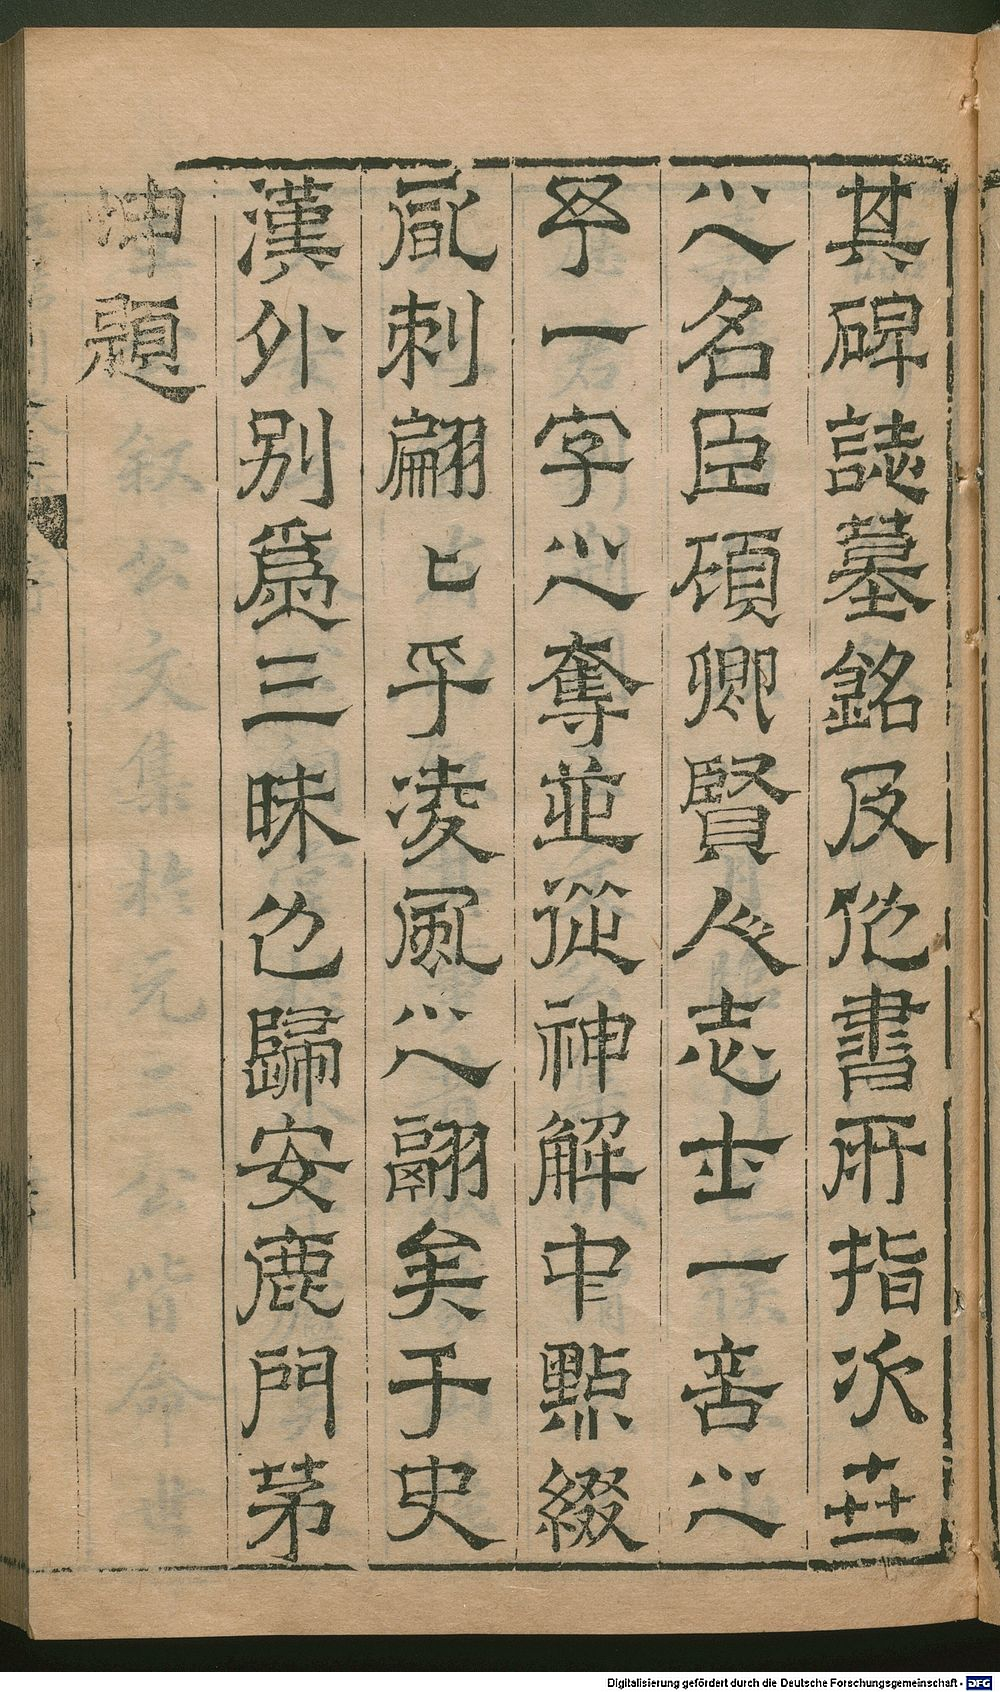 其碑誌墓銘及他書所指次世
之名臣碩卿賢人志士一言之
予一字之奪並從神解中點綴
凮刺翩〻乎凌風之翮矣于史
漢外別爲三昧也歸安鹿門茅
坤題
Digitalisierung gefördert durch die Deutsche Forschungsgemeinschaft - DFG